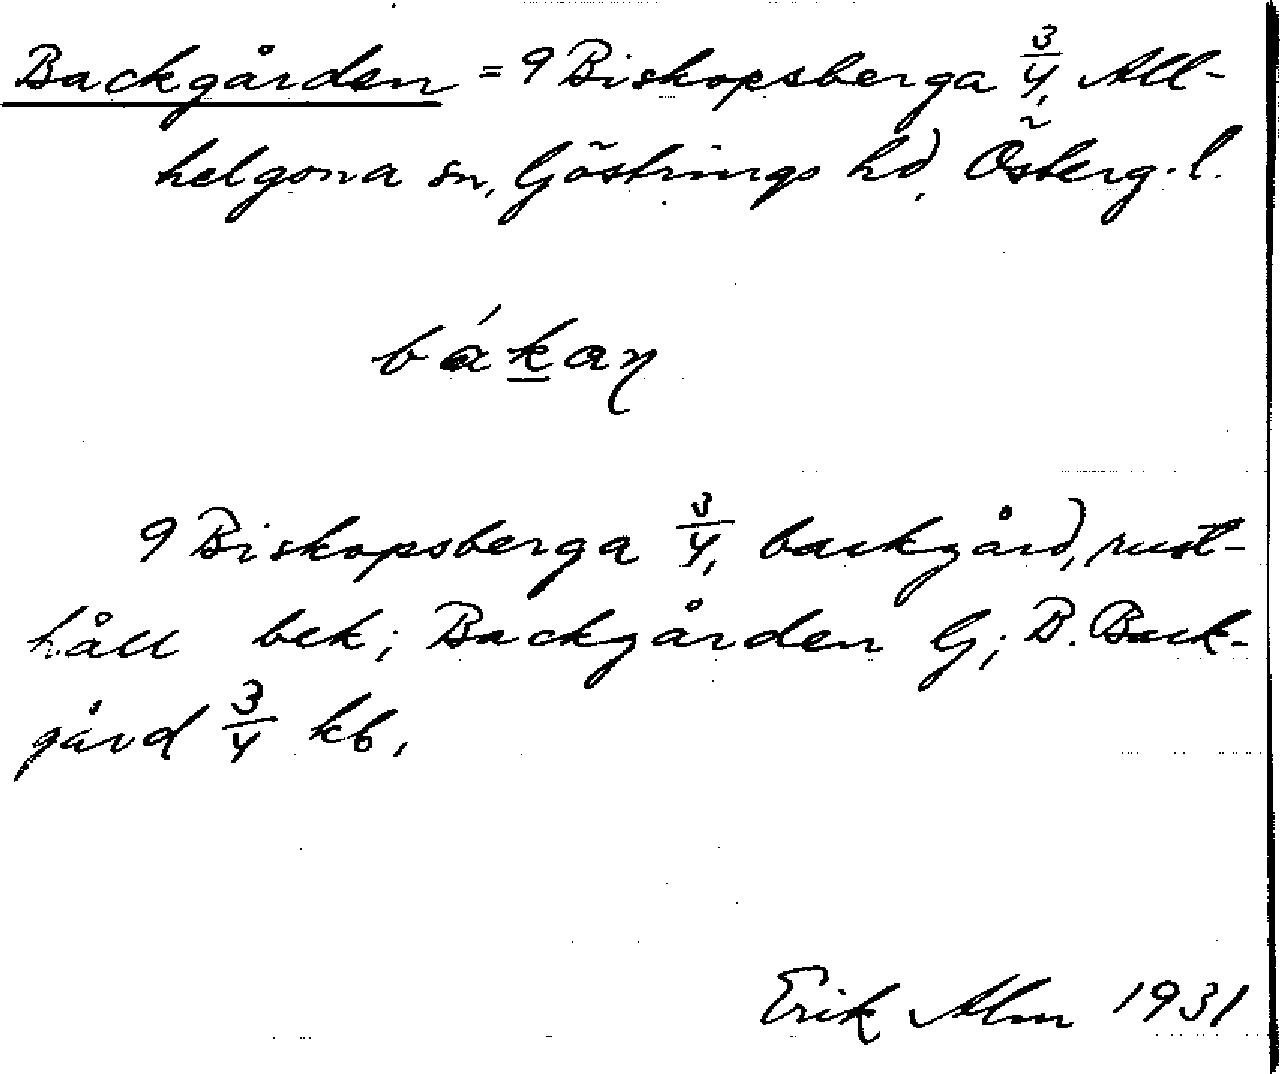 Backgården = 9 Biskopsberga 3/4, All-
helgona sn, Göstrings hd, Österg. l.
bákaɳ
9 Biskopsberga 3/4, backgård, rust-
håll bek; Backgården G; B. Back-
gård 3/4 kb.
Erik Alm 1931